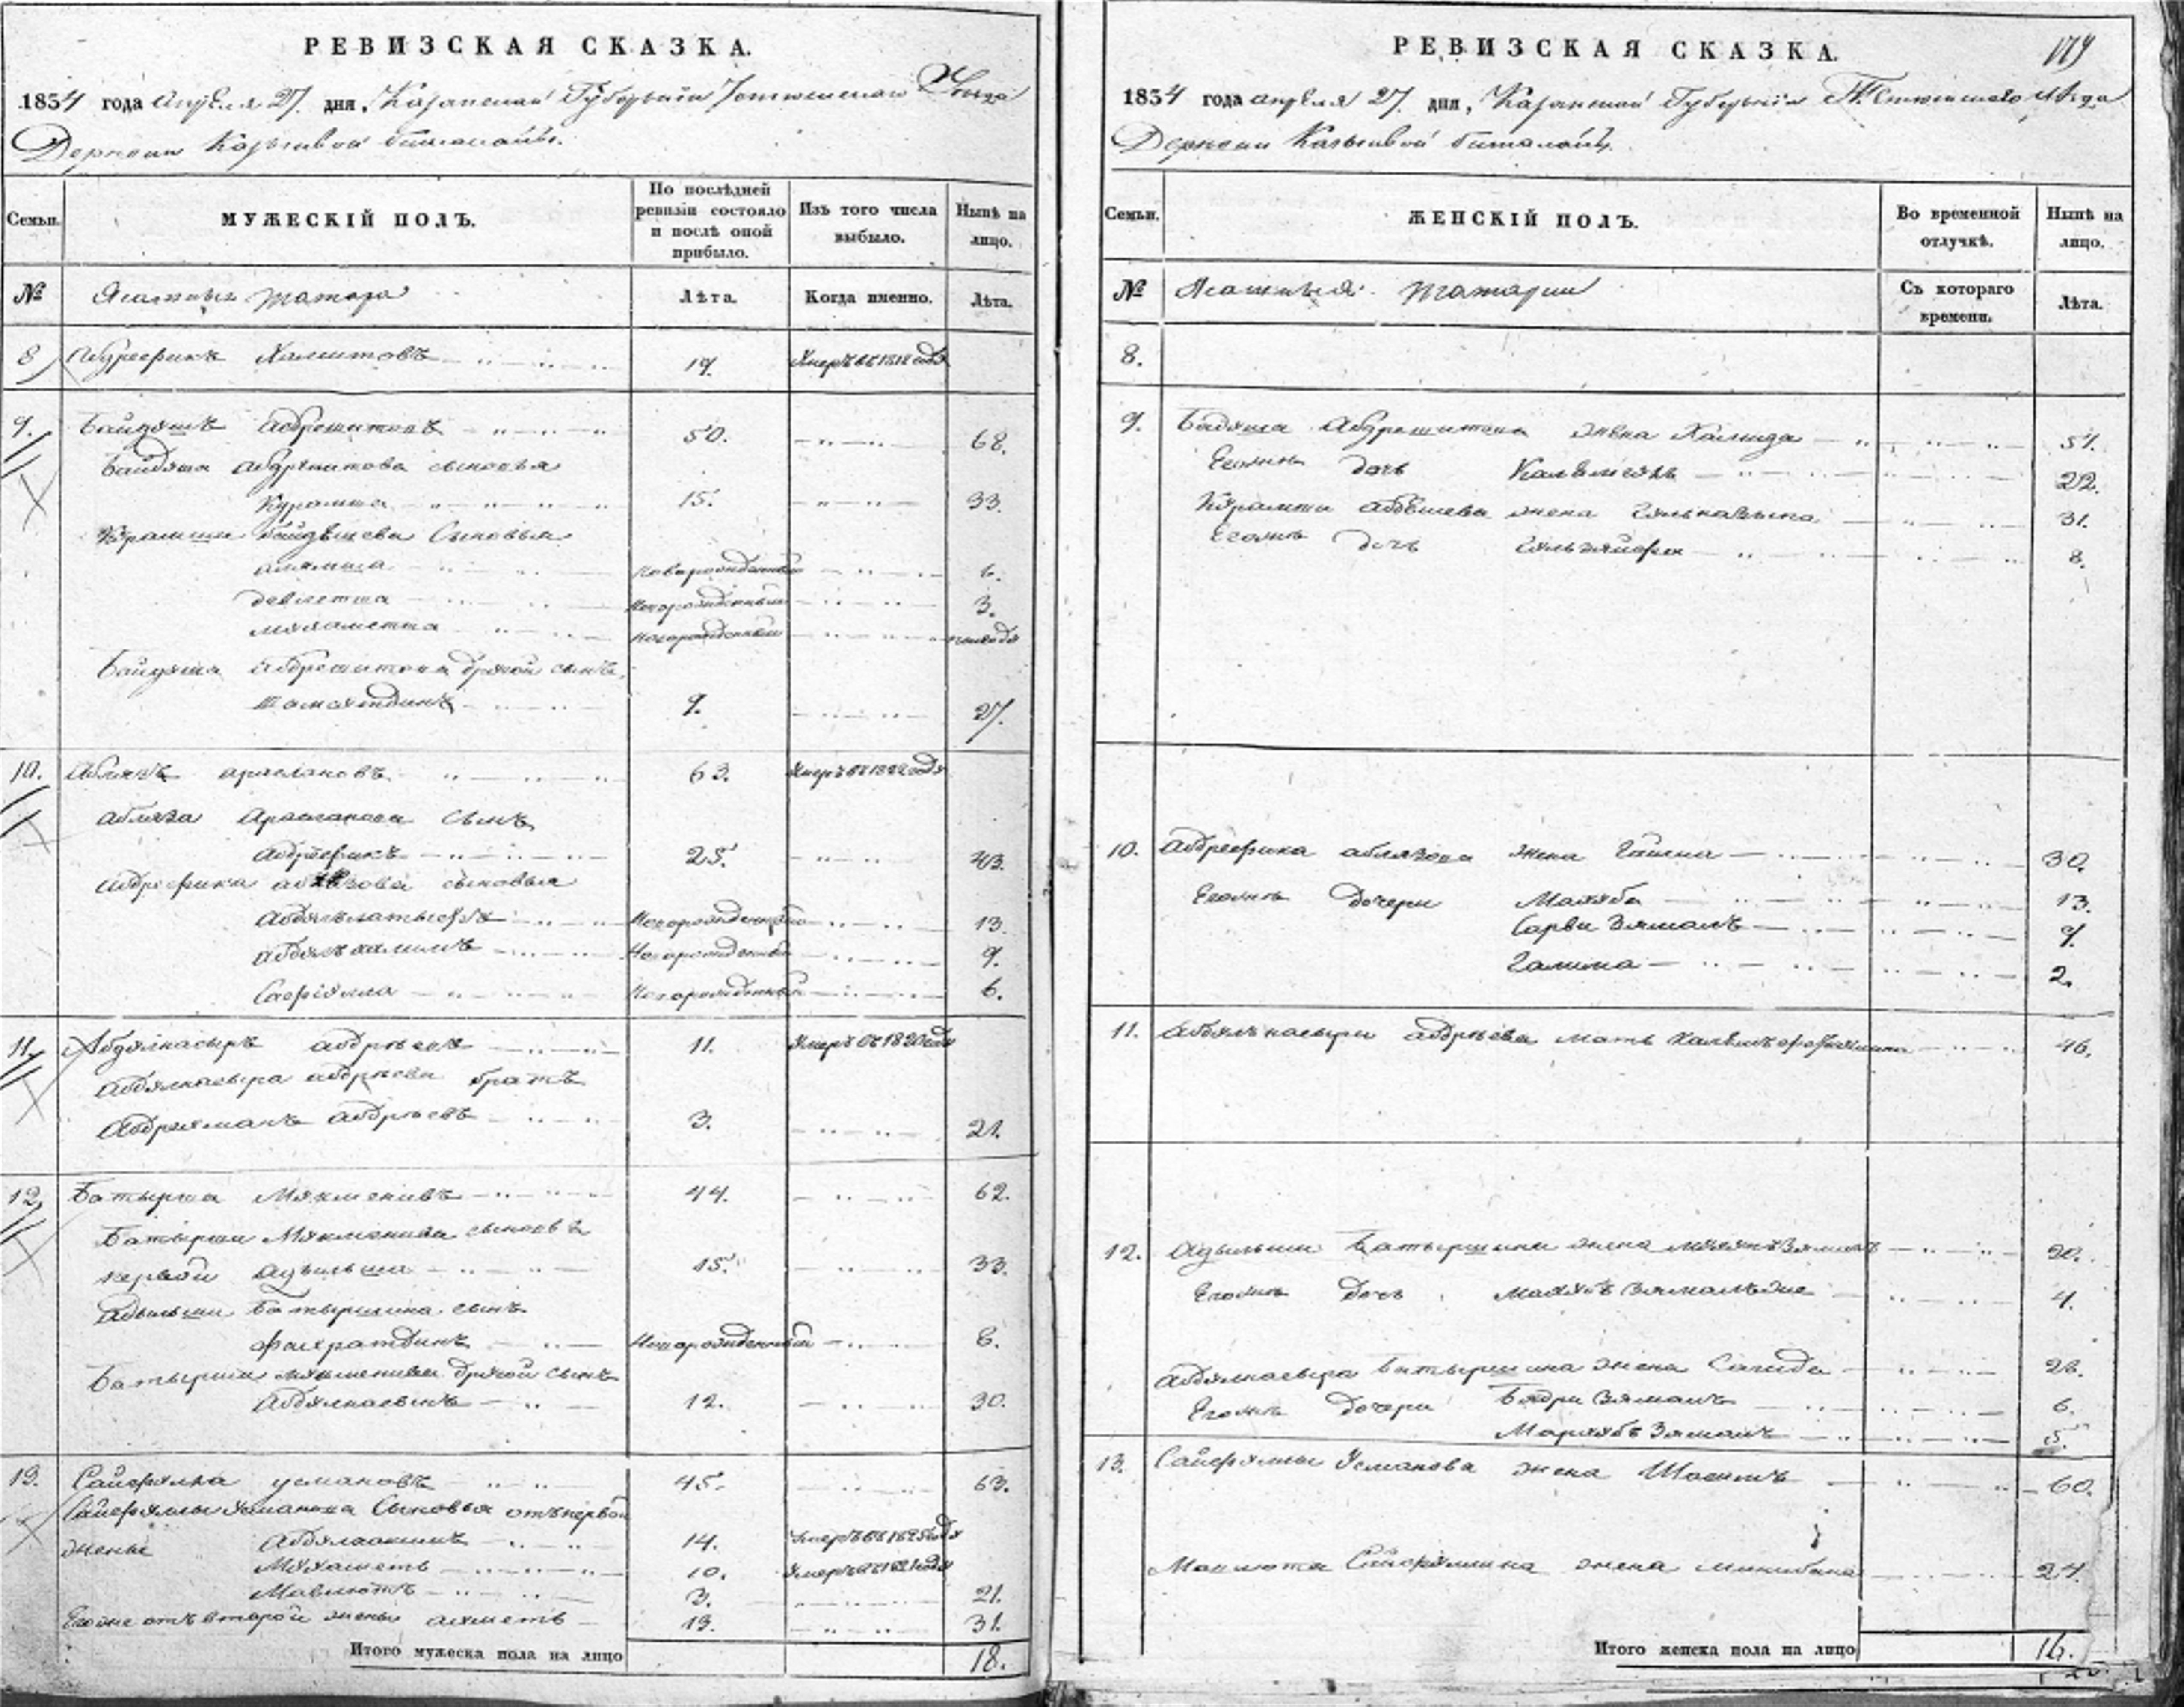 РЕВИЗСКАЯ СКАЗКА.
1834 года апреля 27. дня, Казанской Губернии Тетюшскаго Уезда
Деревни
Семьи.
МУЖЕСКІЙ ПОЛЪ.
По послѣдней ревизіи состояло и послѣ оной прибыло.
Изъ того числа выбыло.
Нынѣ на лицо.
№
Ясашныхъ татаръ
Лѣта.
Когда именно.
Лѣта.
8 Абдрефикъ Хамитовъ 19. Умеръ въ 1818 годѣ
9. Байдяшъ Абдрешитовъ 50. 68.
Байдяша Абдрешитова сыновья
Курамша 15. 33.
Курамши Байдяшева Сыновья
Новорожденный 6.
девлетша Новорожденный 3.
Мухаметша Новорожденный
Байдяша Абдрешитова другой сынъ,
9. 27.
10. Аблязъ араслановъ 63. Умеръ въ 1822 годѣ
Абляза Арасланова сынъ
Абдрефикъ 25. 43.
Абдрефика аблязова сыновья
Абдулълатыфъ Новорожденный 13
Абдулъхалимъ Новорожденный 9.
Сафіулла Новорожденный 6.
11. Абдулнасыръ абдрѣевъ 11. Умеръ въ 1820 годѣ
Абдулнасыра абдрѣева братъ
Абдряманъ абдрѣевъ 3. 21.
12. Батырша Мякменевъ 44. 62.
Батырши Мякменева сыновья
первой Адыльша 15. 33.
Адыльши Батыршина сынъ
Фахратдинъ Новорожденный 8.
Батырши мякменева другой сынъ
12. 30.
13. Сайфулла усмановъ 45. 63.
Сайфуллы Усманова Сыновья отъ первой
жены 14.
Мухаметъ 10.
Мавлютъ 3. 21.
Егоже отъ второй жены ахметъ 13. 31.
Итого мужеска пола на лицо 18.
РЕВИЗСКАЯ СКАЗКА. 179
1834 года апреля 27. дня, Казанской Губерніи Тетюшскаго уѣзда
Деревни
Семьи.
ЖЕНСКІЙ ПОЛЪ.
Во временной отлучкѣ.
Нынѣ на лицо.
№
Ясашныя татарки
Съ котораго времени.
Лѣта.
8.
9. Байдяша Абдрешитова жена Хамида 51.
Егожъ дочь 22.
Курамши жена 31.
Егожъ дочь 8.
10. Абдрефика аблязова жена 30.
Егожъ дочери Махуба 13.
Сарви Зямалъ 9.
Галима 2.
11. Абдулънасыра абдрѣева мать 46.
12. Адыльши Батыршина жена 20.
Егожъ дочь 4.
Абдулнасыра Батыршина жена Сагида 28.
Егожъ дочери Бядри Зямалъ 6.
5.
13. Сайфуллы Усманова жена 60.
Мавлюта Сайфуллина жена 24.
Итого женска пола на лицо 16.